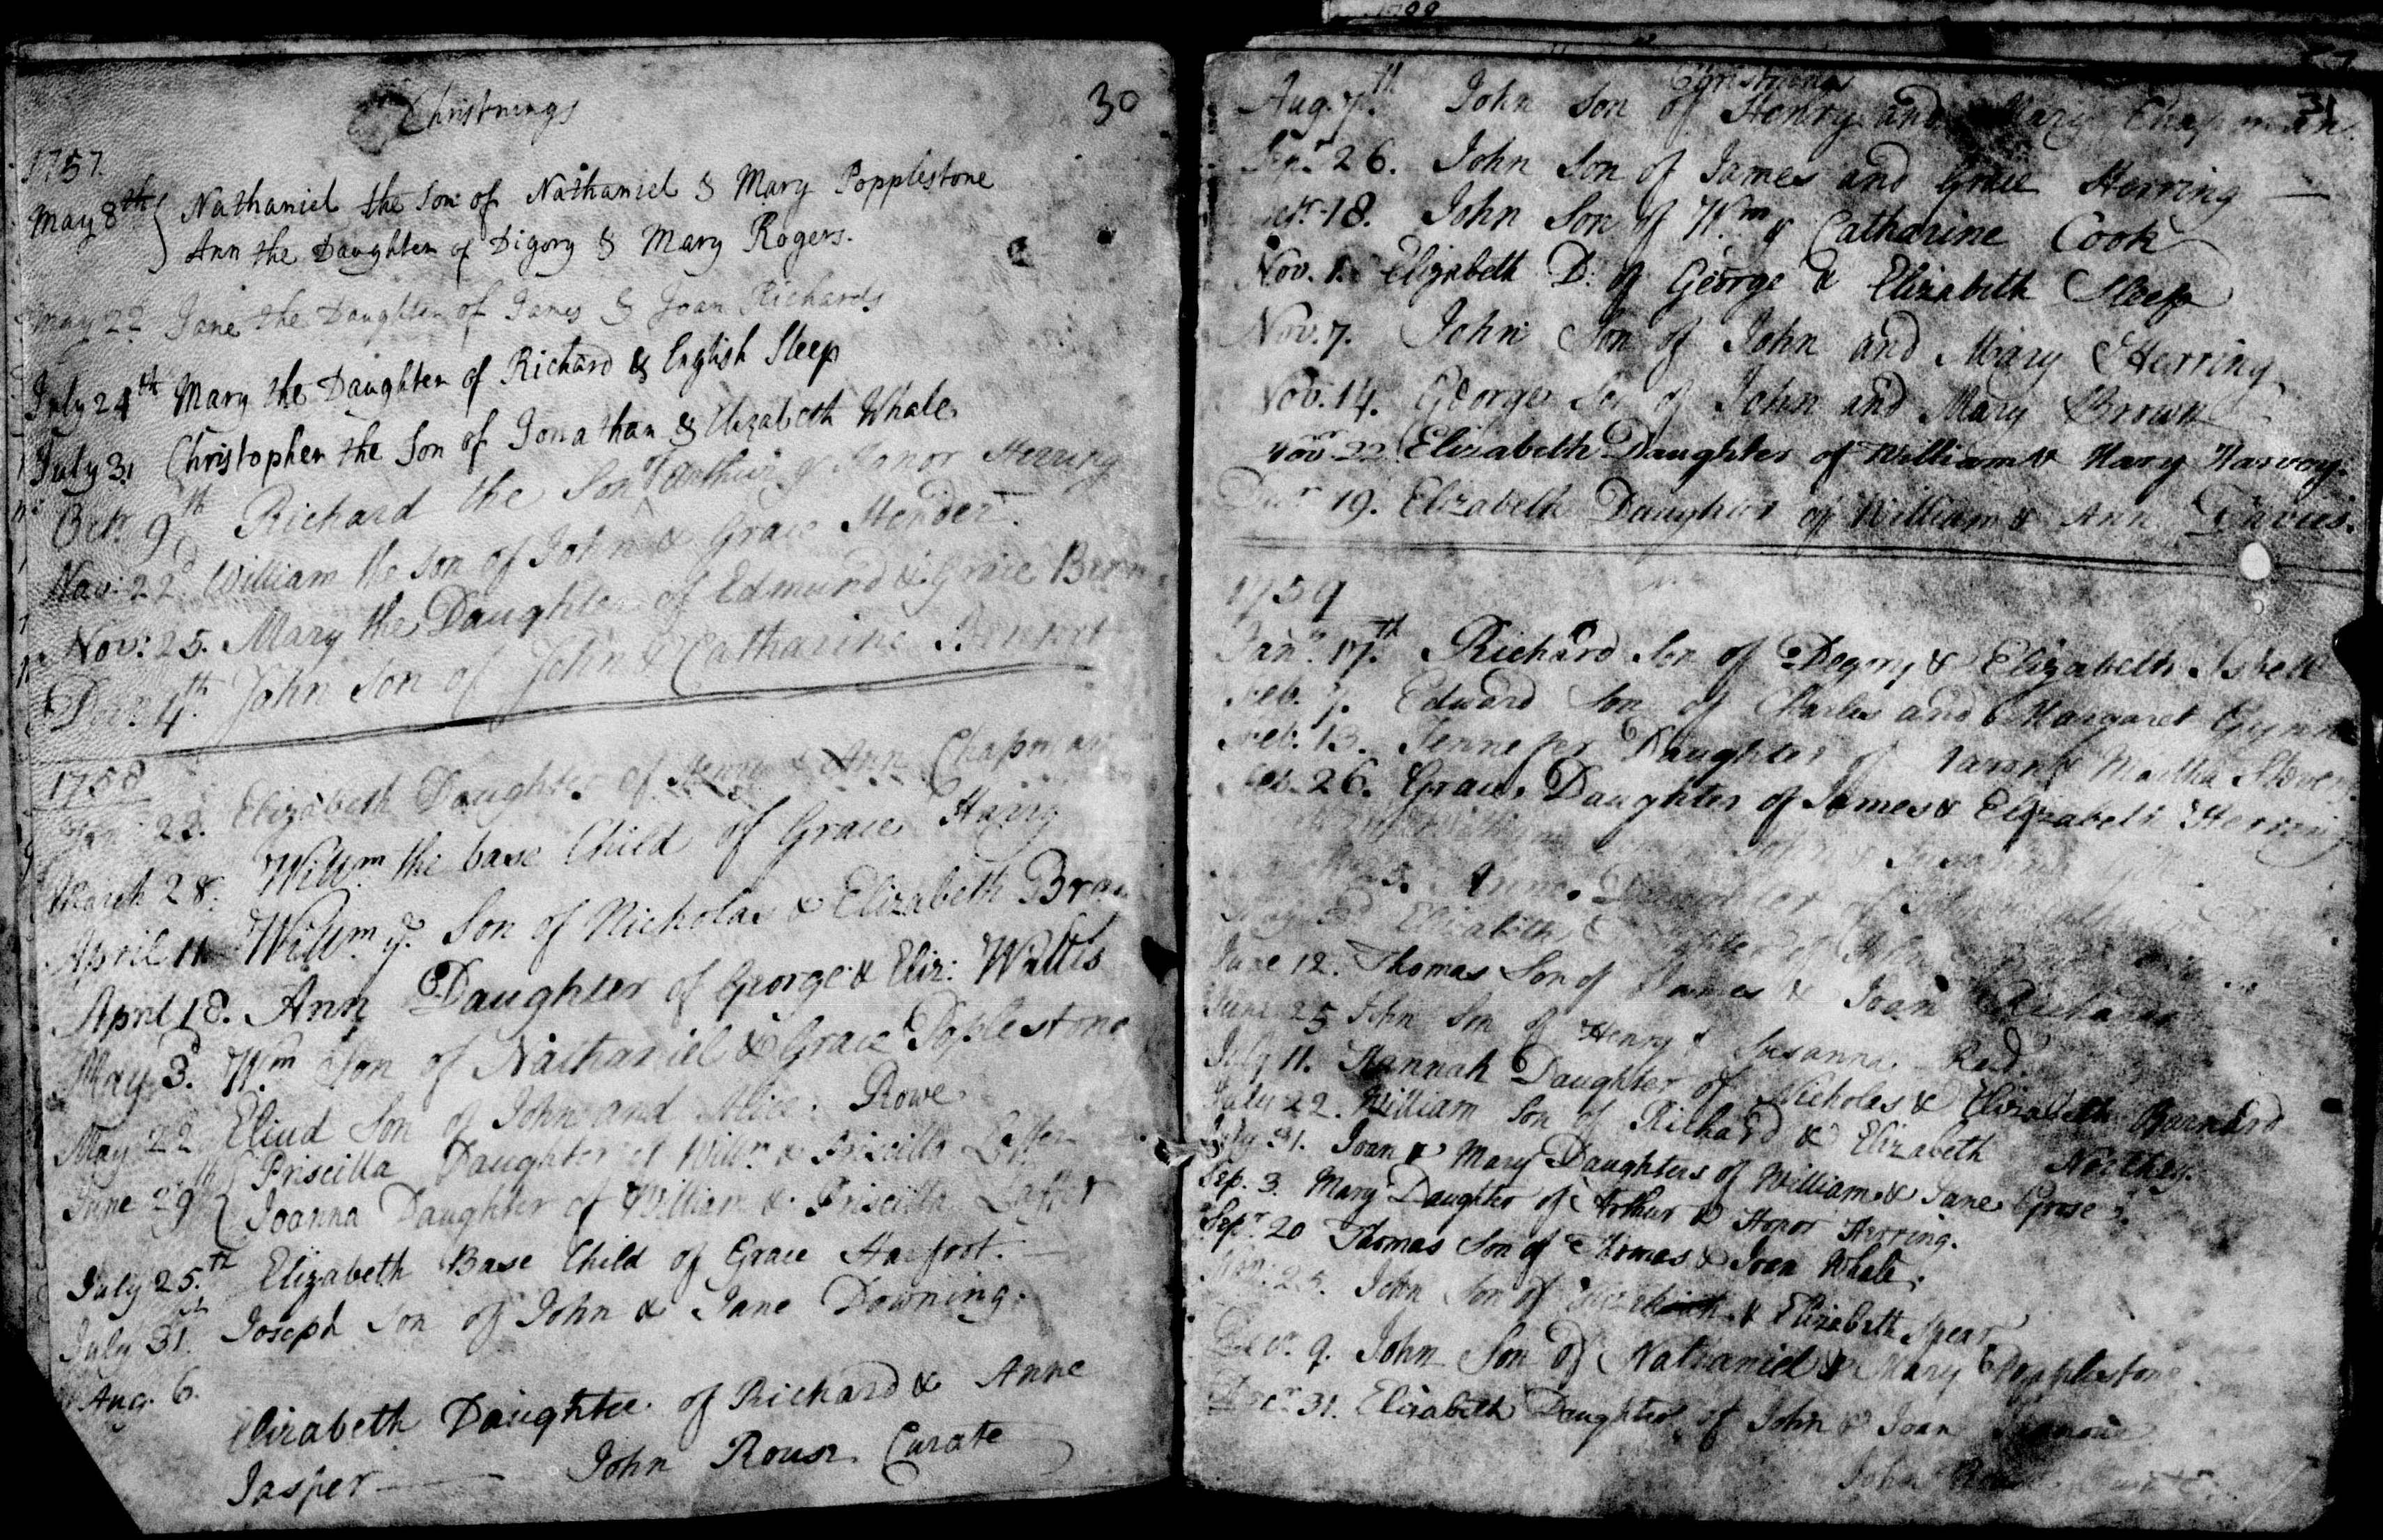 Christnings 30
1757.
May 8th Nathaniel the Son of Nathaniel & Mary Popplestone
Ann the Daughter of Digory & Mary Rogers.
May 22d Jane the Daughter of James & Joan Richards
July 24th Mary the Daughter of Richard & English Sleep
July 31 Christopher the Son of Jonathan & Elizabeth Whale
Octr 9th Richard the Son of Arthur & Honor Herring
Nov: 22d William the Son of John & Grace Hender
Nov: 25. Mary the Daughter of Edmund & Grace
Decr 4th John Son of John & Catharine
1758
Jan: 22. Elizabeth Daughter of & Ann Chapman
March 28. Willm the base Child of Grace
April 11 Willm ye Son of Nicholas & Elizabeth
April 18. Ann Daughter of George & Eliz: Wallis
May 3d Wm Son of Nathaniel & Grace Popplestone
May 22 Eliud Son of John and Alice Rowe
June 29th Priscilla Daughter of Willm & Priscilla
Joanna Daughter of William & Priscilla
July 25th Elizabeth Base Child of Grace Harfoot.
July 31st Joseph Son of John & Jane Downing.
Aug. 6. Elizabeth Daughter of Richard & Anne
Jasper John Rouse Curate
Christnings 31
Aug. 7th John Son of Henry and Mary Chapman.
Sepr 26. John Son of James and Grace Herring
18. John Son of Wm & Catharine Cook
Nov. 1. Elizabeth D. of George & Elizabeth Sleep
Nov. 7. John Son of John and Mary Herring
Nov. 14. George Son of John and Mary Brown
Novr 22 Elizabeth Daughter of William & Mary Harvey.
Decr 19. Elizabeth Daughter of William & Ann Davies.
1759
Jany 17th Richard Son of Degory & Elizabeth Isbell
Feb. 7. Edward Son of Charles and Margaret
Feb. 13. Jennefer Daughter of & Martha
Feb. 26. Grace Daughter of James & Elizabeth Herring
William John &
Anne Daughter of
Elizabeth Daughter of John
June 12. Thomas Son of James & Joan Richards
June 25 John Son of Henry & Susanna Read.
July 11. Hannah Daughter of Nicholas & Elizabeth Barnard
July 22. William Son of Richard & Elizabeth Northey.
July 31. Joan & Mary Daughters of William & Jane Grose.
Sep. 3. Mary Daughter of Arthur & Honor Herring.
Sepr 20 Thomas Son of Thomas & Joan Whale.
25. John Son of & Elizabeth Spear
Decr 9. John Son of Nathaniel & Mary Popplestone.
Decr 31. Elizabeth Daughter of John & Joan
John